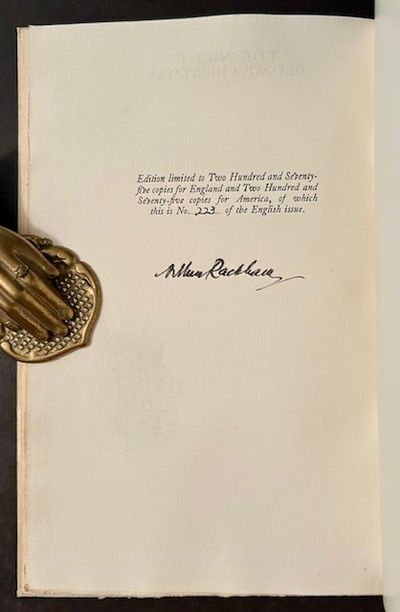 Edition limited to Two Hundred and Seventy-
five copies for England and Two Hundred and
Seventy-five copies for America, of which
this is No...223... of the English issue.
Arthur Rackham